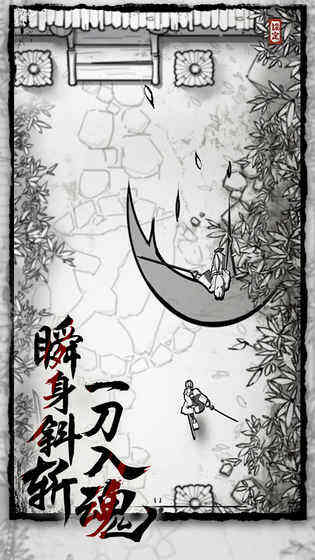 瞬身斜斩
一刀入魂